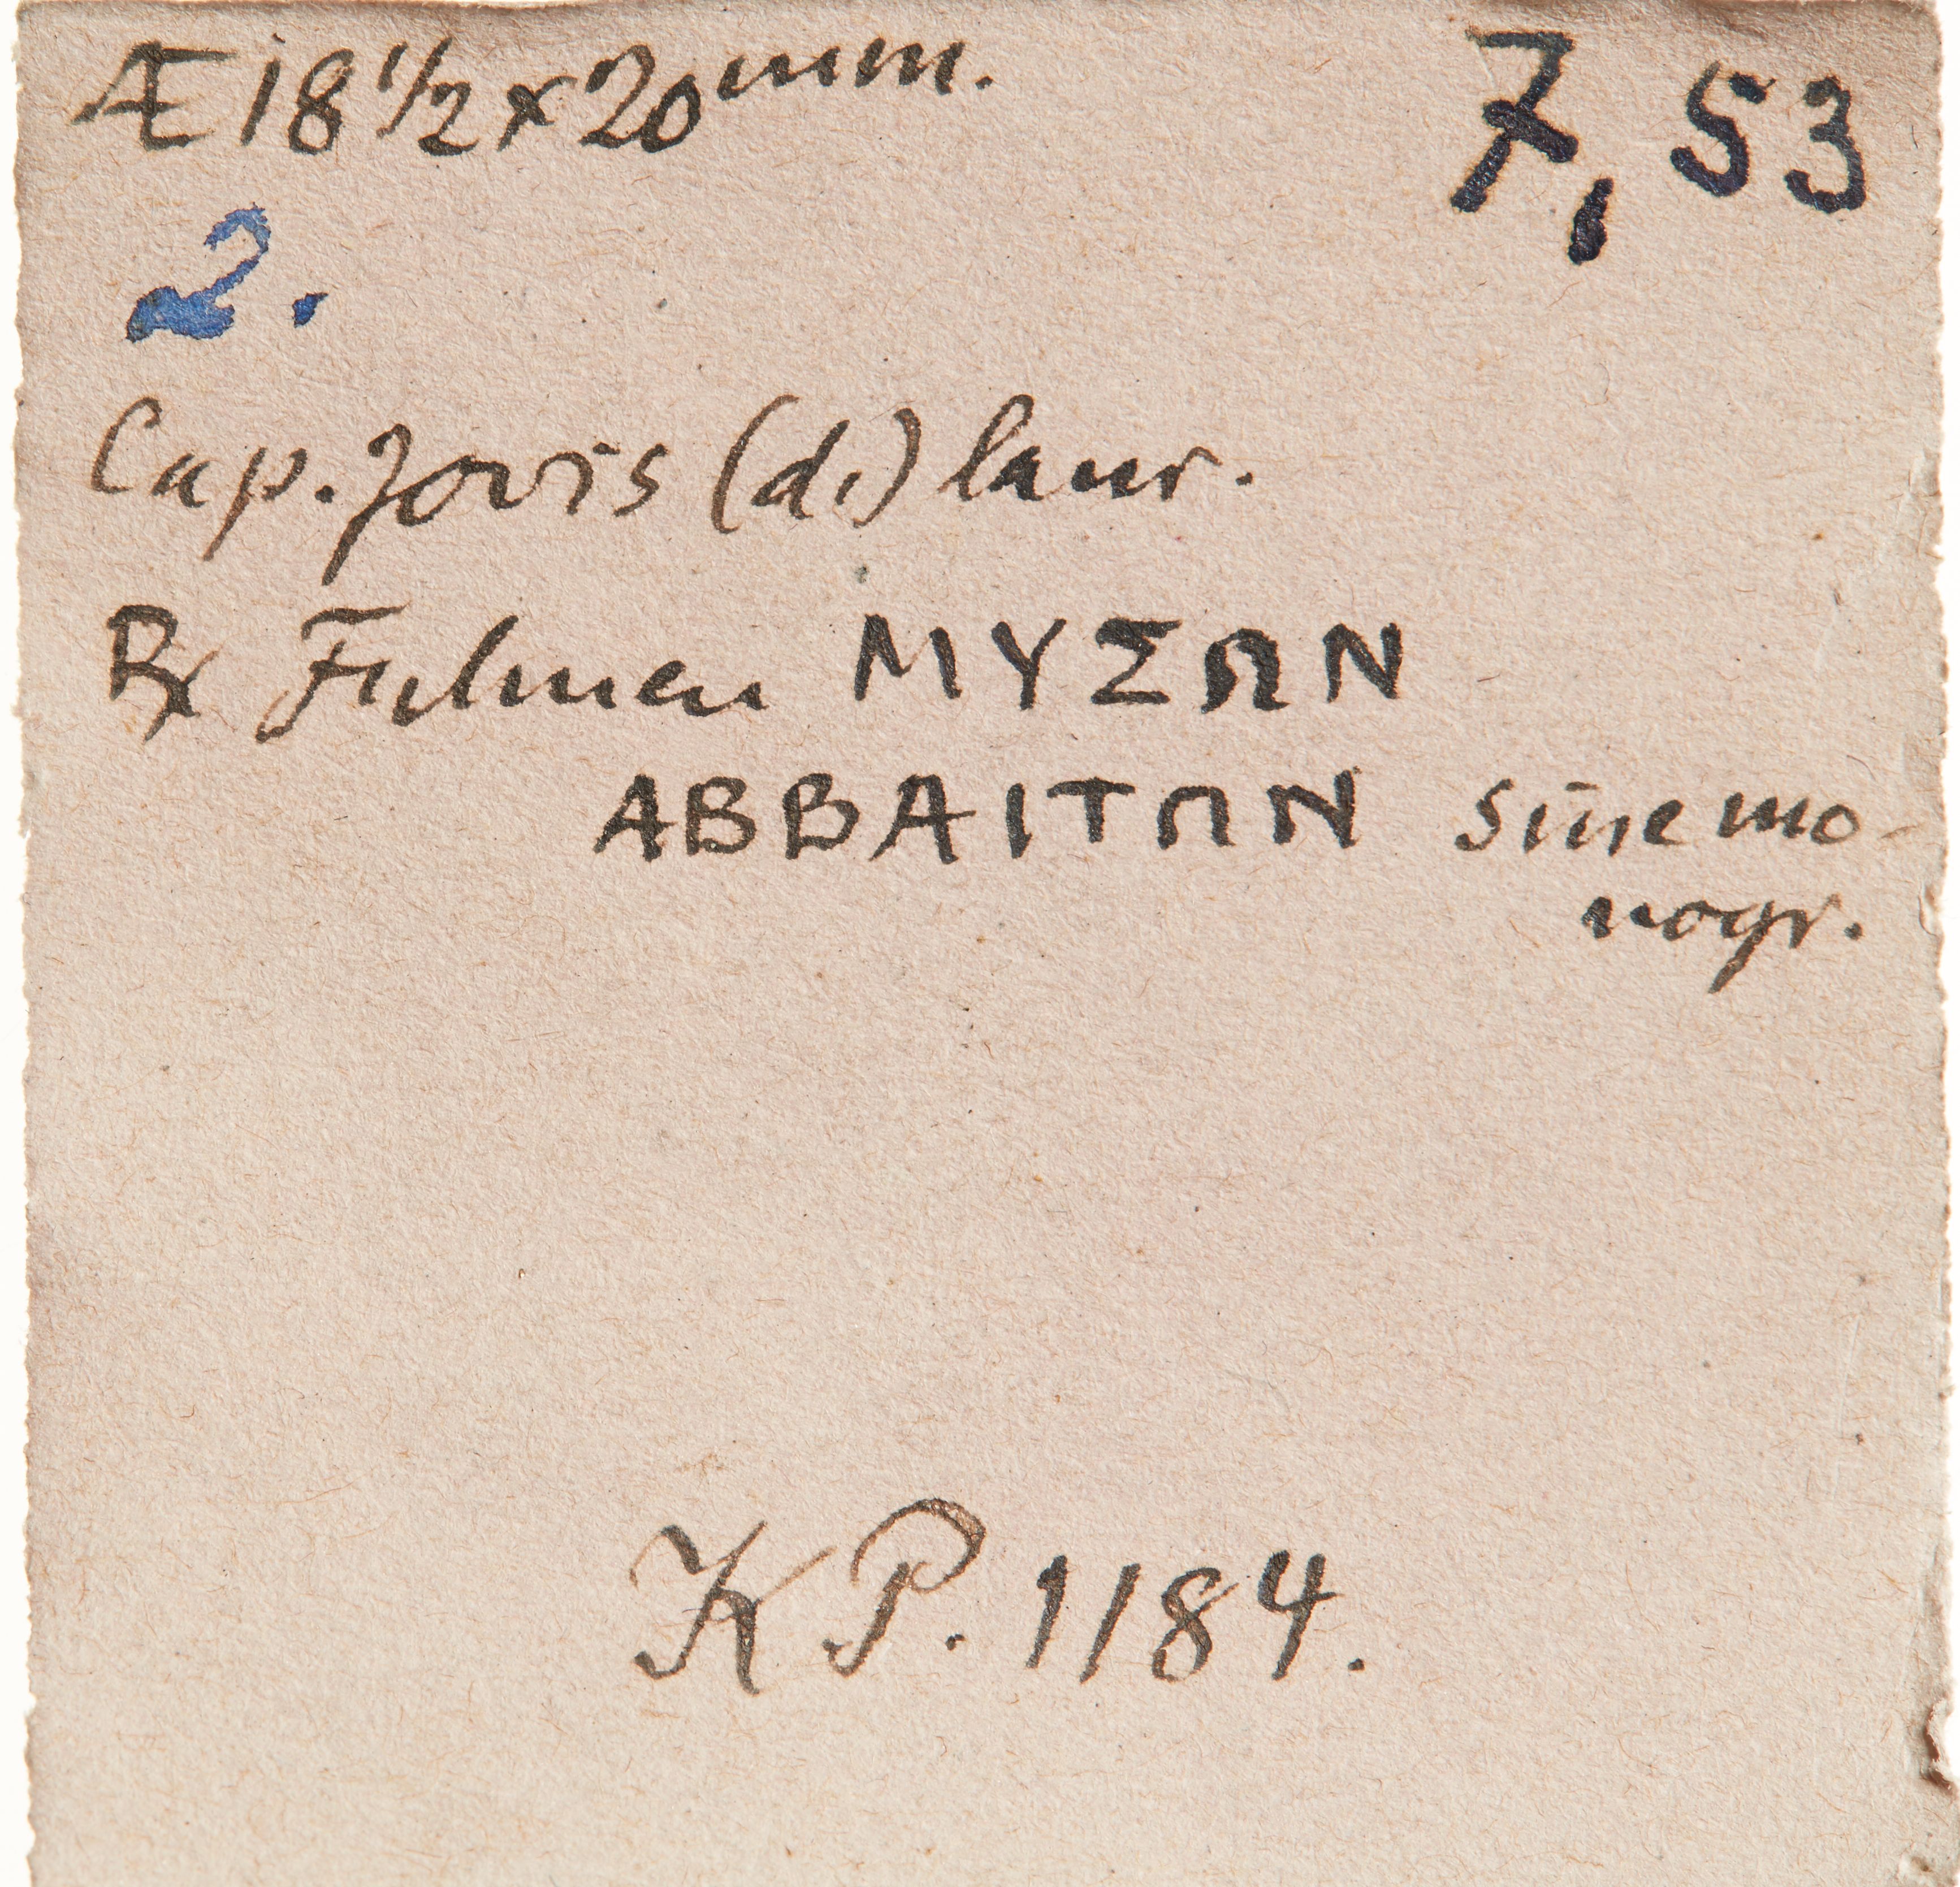 Æ 18 1/2 x 20 mm. 7,53
2.
Cap. Jovis (d.) laur.
Rx Fulmen ΜΥΣΩΝ
ΑΒΒΑΙΤΩΝ sine mo-
nogr.
K P. 1184.